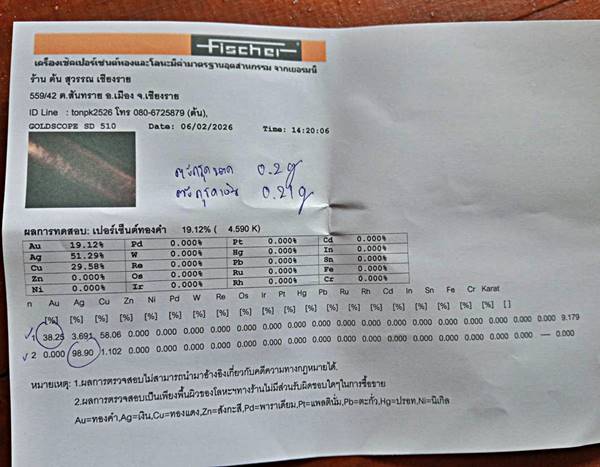 Fischer
เครื่องเช็คเปอร์เซนต์ทองและโลหะมีค่ามาตรฐานอุตสาหกรรม จากเยอรมนี
ร้าน ต้น สุวรรณ เชียงราย
559/42 ต.สันทราย อ.เมือง จ.เชียงราย
ID Line : tonpk2526 โทร 080-6725879 (ต้น),
GOLDSCOPE SD 510 Date: 06/02/2026 Time: 14:20:06
0.2g
0.21g
ผลการทดสอบ: เปอร์เซ็นต์ทองคำ 19.12% ( 4.590 K)
Au 19.12% Pd 0.000% Pt 0.000% Cd 0.000%
Ag 51.29% W 0.000% Hg 0.000% In 0.000%
Cu 29.58% Re 0.000% Pb 0.000% Sn 0.000%
Zn 0.000% Os 0.000% Ru 0.000% Fe 0.000%
Ni 0.000% Ir 0.000% Rh 0.000% Cr 0.000%
n Au Ag Cu Zn Ni Pd W Re Os Ir Pt Hg Pb Ru Rh Cd In Sn Fe Cr Karat
[%] [%] [%] [%] [%] [%] [%] [%] [%] [%] [%] [%] [%] [%] [%] [%] [%] [%] [%] [%] [ ]
1 38.25 3.691 58.06 0.000 0.000 0.000 0.000 0.000 0.000 0.000 0.000 0.000 0.000 0.000 0.000 0.000 0.000 0.000 0.000 0.000 9.179
2 0.000 98.90 1.102 0.000 0.000 0.000 0.000 0.000 0.000 0.000 0.000 0.000 0.000 0.000 0.000 0.000 0.000 0.000 0.000 — 0.000
หมายเหตุ: 1.ผลการตรวจสอบไม่สามารถนำมาอ้างอิงเกี่ยวกับคดีความทางกฎหมายได้.
2.ผลการตรวจสอบเป็นเพียงพื้นผิวของโลหะฯทางร้านไม่มีส่วนรับผิดชอบใดๆในการซื้อขาย
Au=ทองคำ,Ag=เงิน,Cu=ทองแดง,Zn=สังกะสี,Pd=พาราเดียม,Pt=แพลตินั่ม,Pb=ตะกั่ว,Hg=ปรอท,Ni=นิเกิล